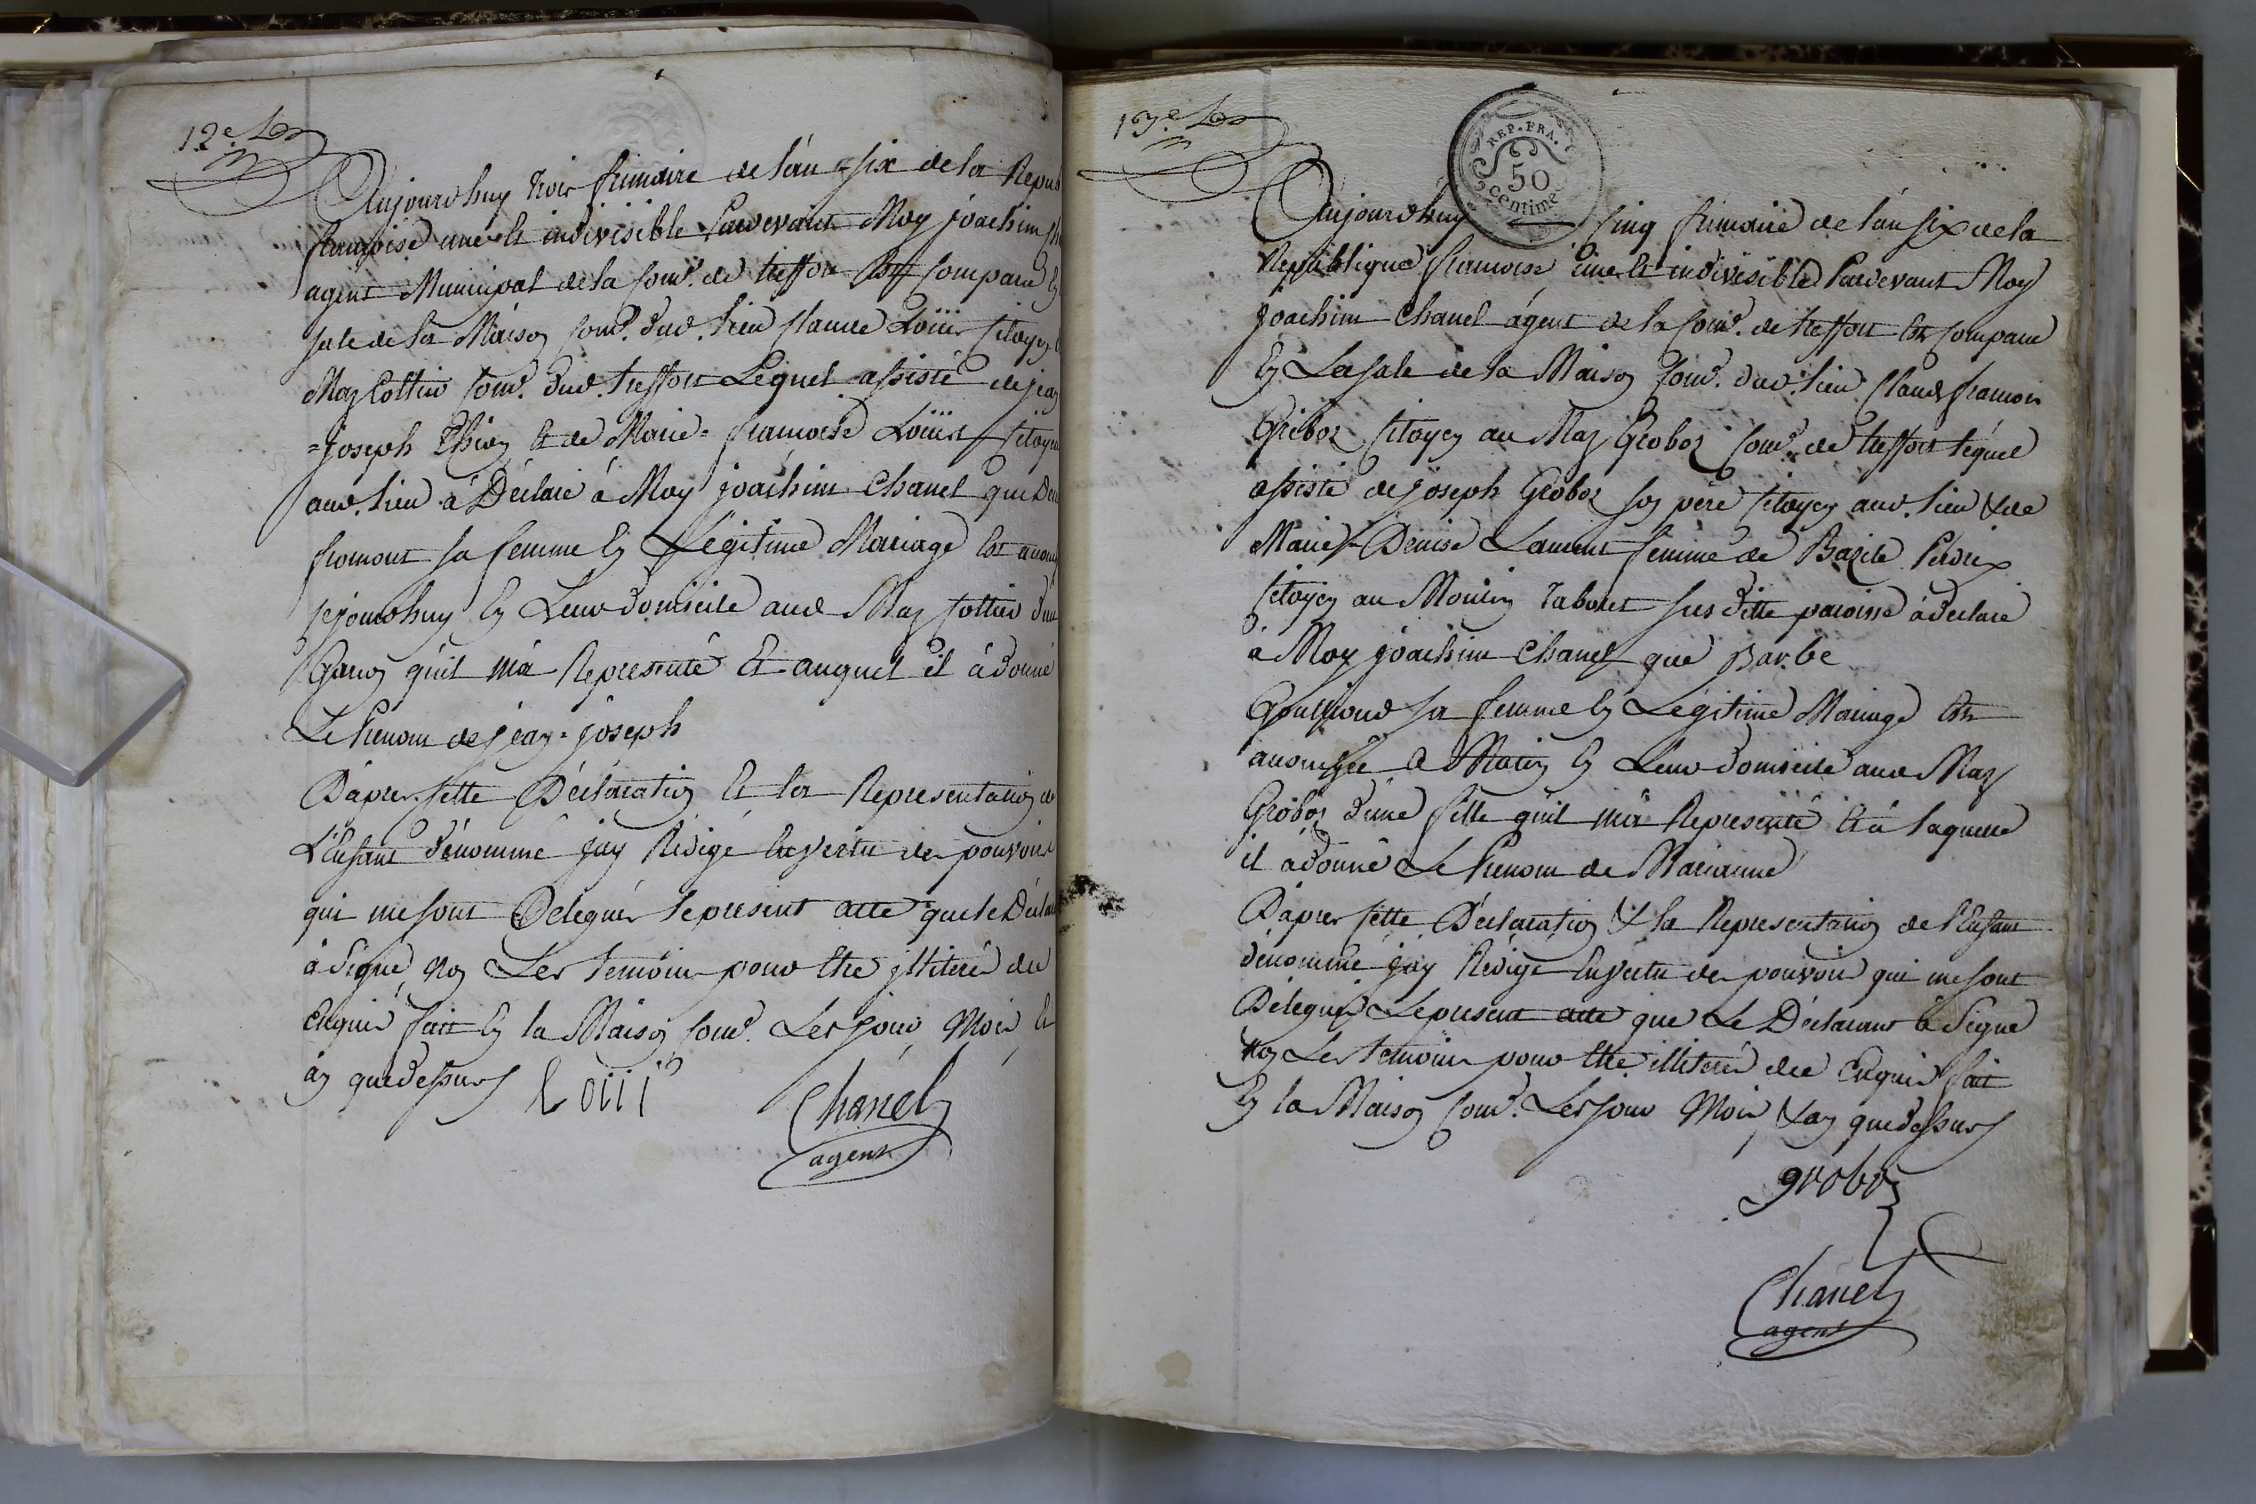 12.e
Aujourdhuy trois frimaire de l'án six de la Repub
françoise une et indivisible Pardevant Moy joachim Ch
agent Municipal de la Com.e de treffort Est Comparu En
Sale de la Maison Com.e dud. lieu Claude Loüis Citoyen
Maz Cottin Com.e dud. treffort Lequel assisté de jean
=joseph Thion et de Marie= francoise Loüis Citoyen
aud. lieu à Déclaré á Moy joachim Chanel que
fromont sa femme En Légitime Mariage Est
cejourdhuy En Leur domicile aud Maz Cottin d'un
Garçon qu'il má Representé Et auquel il à donné
Le Prenom de jean=joseph
D'aprés Cette Déclaration Et la Representation de
L'Enfant dénommé jáy Rédigé En vertu des pouvoirs
qui me sont Delegués le présent acte que le Décla
à Signé, non Les temoins pour Etre illiterés de ce
Enquis fait En la Maison Com.e Les jour, Mois, Et
án que dessus
Loiii
Chanel
agent
13.e
REP. FRA.
50
Centime
Aujourdhuy Cinq frimaire de l'án six de la
Republique francoise une et indivisible Pardevant Moy
joachim Chanel ágent de la Com.e de treffort Est Comparu
En La Sale de la Maison Com.e dud. lieu Claude francois
Groboz Citoyen au Maz Groboz Com.e de treffort léquel
assisté de joseph Groboz son pere Citoyen aud. lieu & de
Marie=Denise Laurent femme de Bazile Perdrix
Citoyen au Moulin Tabouret Susditte paroisse à déclaré
á Moy joachim Chanel que Barbe
Goullioud sa femme En Légitime Mariage Est
accouchée Ce Matin En Leur domicile aud Maz
Groboz d'une fille qu'il má Representé Et á laquelle
il à donné Le Prenom de Marianne
D'aprés Cette Déclaration & la Representation de l'Enfant
dénommé jáy Rédigé En vertu des pouvoirs qui me sont
Délegués Le present acte que Le Déclarant à Signé
non Les temoins pour Etre illiterés de ce Enquis fait
En la Maison Com.e Les jour Mois, & án que dessus
groboz
Chanel
agent